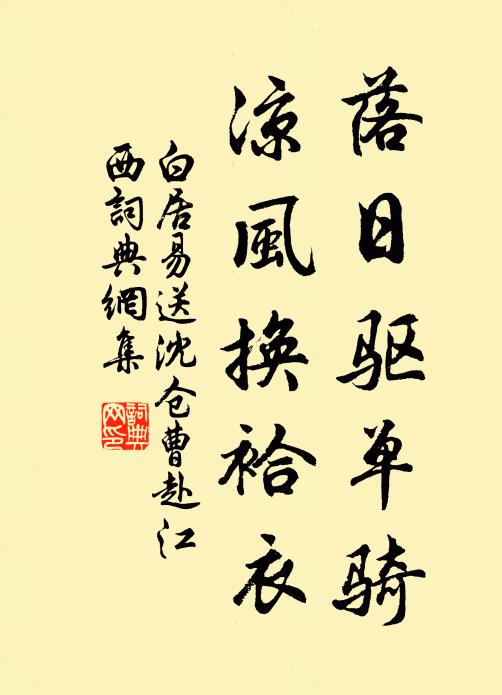 落日驱单骑
凉風换袷衣
白居易送沈仓曹赴江
西詞典網集
詞典网印